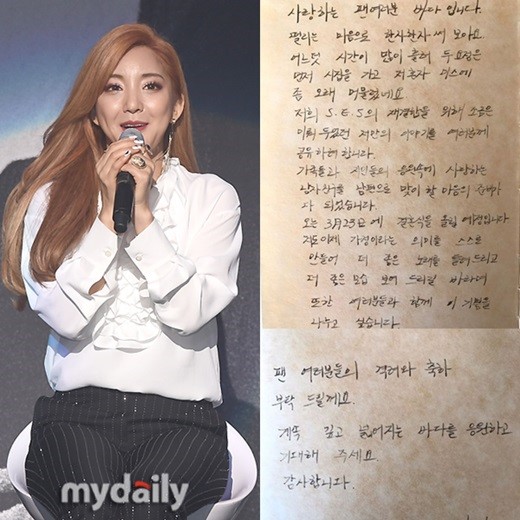 사랑하는 팬여러분 바다입니다.
떨리는 마음으로 한자한자 써 보아요
어느덧 시간이 많이 흘러 두요정은
먼저 시집을 가고 저 혼자 미스에
좀 오래 머물렀네요
저희 S.E.S의 재결합을 위해 조금은
미뤄 두었던 저만의 이야기를 여러분께
공유하려 합니다.
가족들과 지인들의 응원속에 사랑하는
남자친구를 남편으로 맞이 할 마음의 준비가
다 되었습니다.
오는 3月23日에 결혼식을 올릴 예정입니다
저도 이제 가정이라는 의미를 스스로
만들어 더 좋은 노래를 들려드리고
더 좋은 모습 보여 드리길 바라며
또한 여러분들과 함께 이 기쁨을
나누고 싶습니다.
팬 여러분들의 격려와 축하
부탁 드릴께요.
계속 깊고 넓어지는 바다를 응원하고
기대해 주세요.
감사합니다.
mydaily